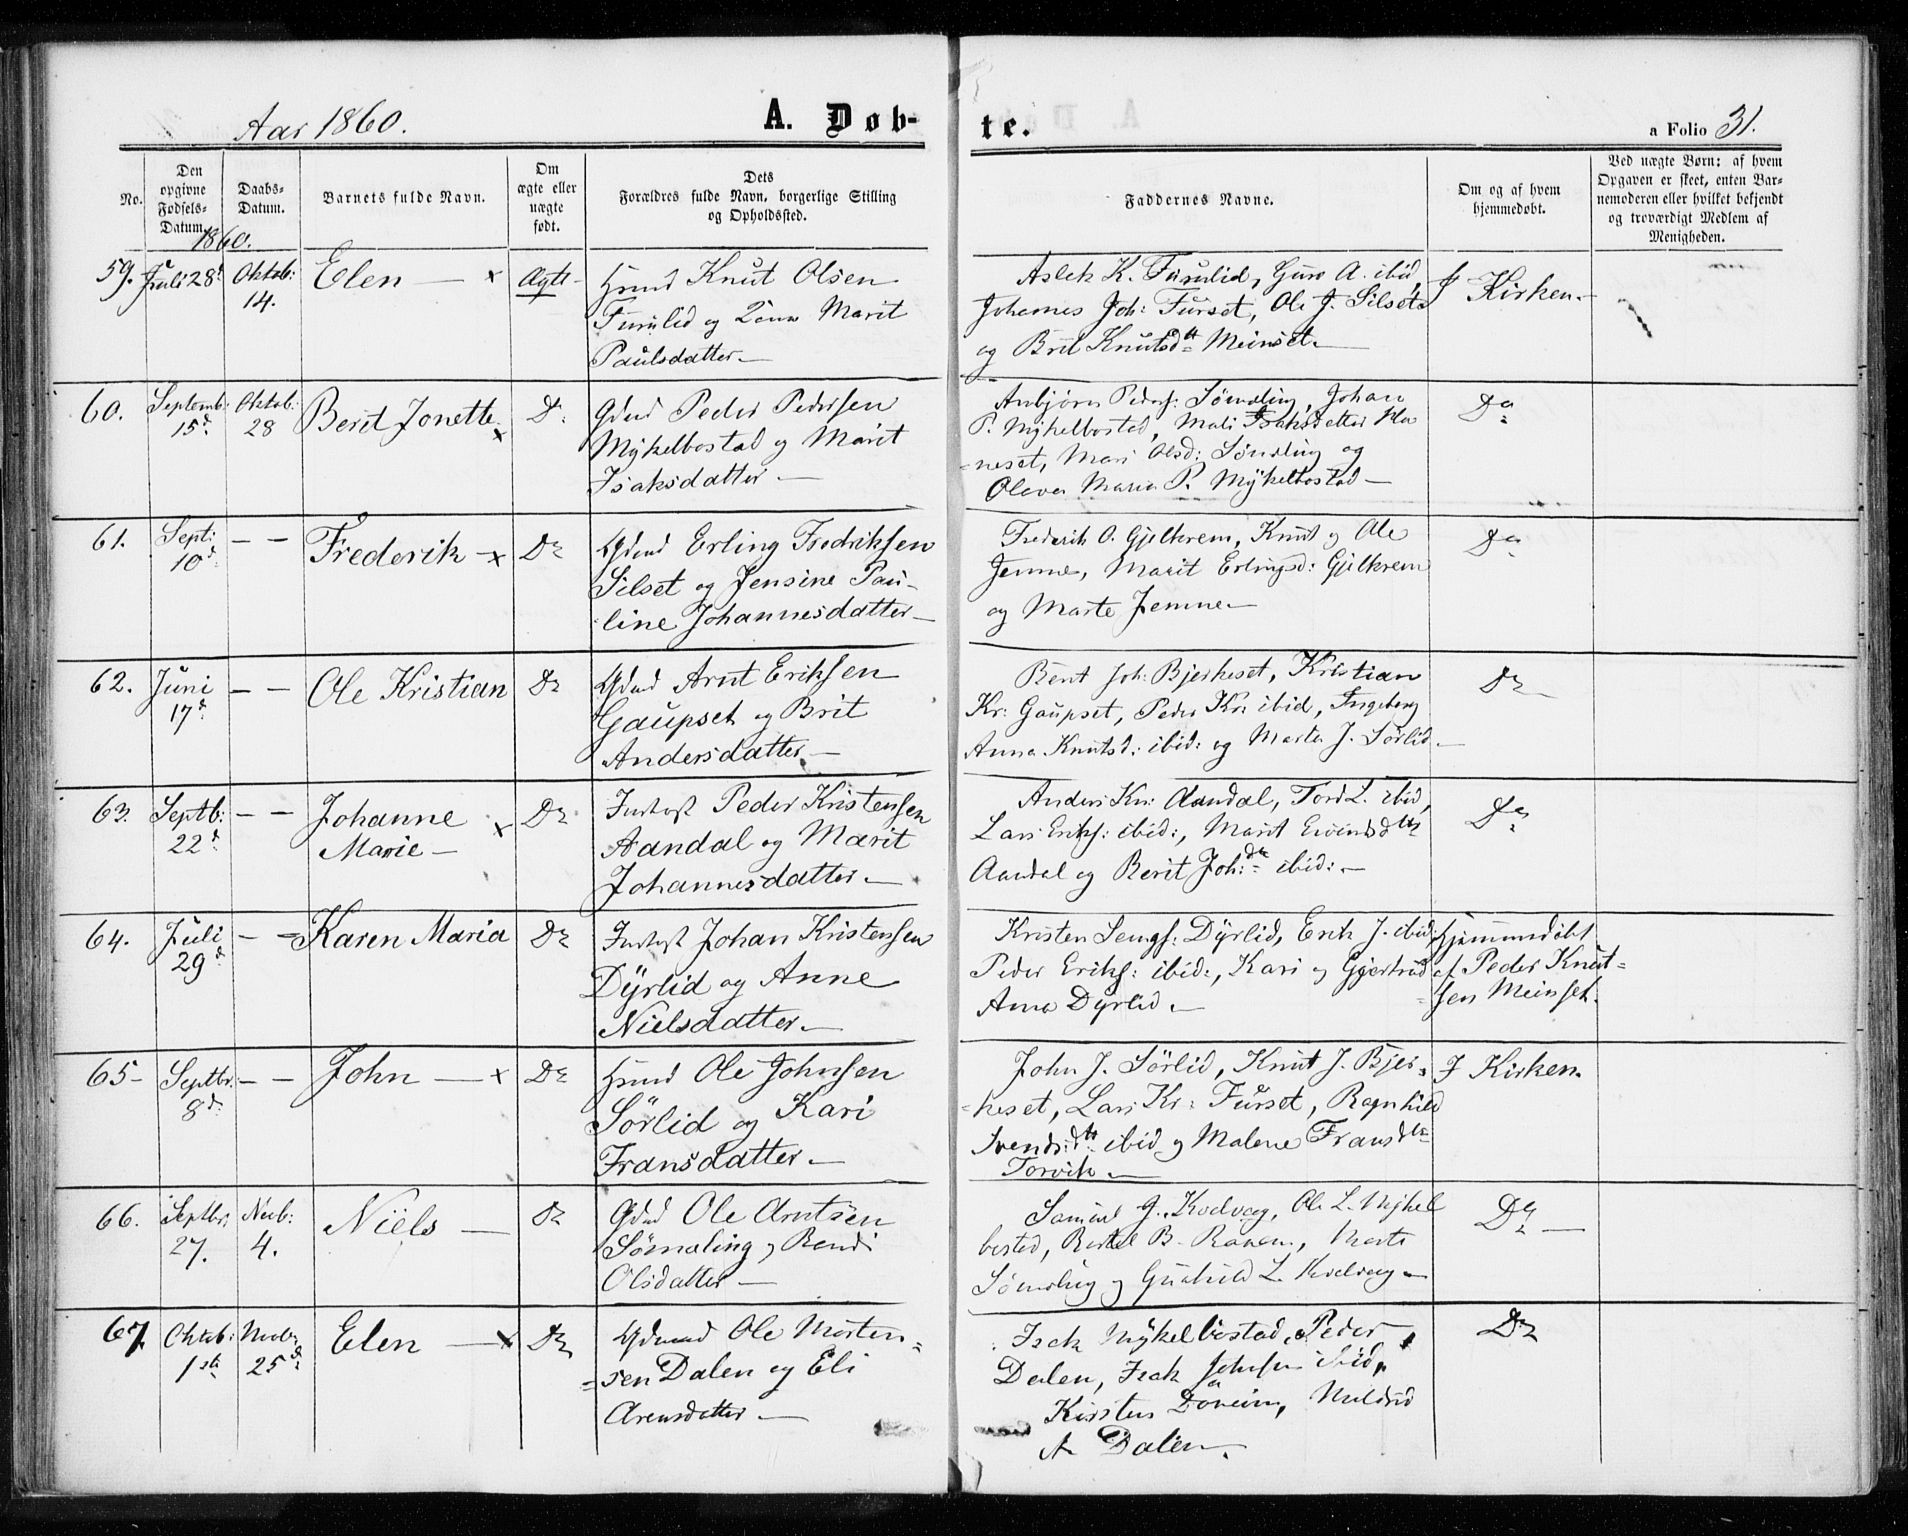 Aar 1860.
A. Døb-
te.
a Folio 31.
No.
Den opgivne Fødsels-Datum.
Daabs-Datum.
Barnets fulde Navn.
Om ægte eller uægte født.
Dets Forældres fulde Navn, borgerlige Stilling og Opholdssted.
Faddernes Navne.
Om og af hvem hjemmedøbt.
Ved uægte Børn; af hvem Opgaven er skeet, enten Barnemoderen eller hvilket bekjendt og troværdigt Medlem af Menigheden.
1860.
59. Juli 28d Oktob: 14. Elen — x Ægte
Hmd Knut Olsen
Furulid og Marit
Paulsdatter —
Aslek K. Furulid, Guro A. ibid,
Johannes Joh: Furset, Ole J. Silset
og Brit Knutsdtr Meinset —
I Kirken —
60. Septemb: 15d Oktob: 28 Berit Jonette x D:
Gdmd Peder Pedersen
Mÿkelbostad og Marit
Isaksdatter —
Anbjørn Peders: Sømeling, Johan
P. Mÿkelbostad, Mali Isaksdatter Ha
=neset, Mari Olsd: Sømeling og
Olava Maria P. Mÿkelbostad —
Do
61. Sept: 10d — — Frederik — x Do
Gdmd Erling Fredriksen
Silset og Jensine Pau-
line Johannesdatter —
Frederik O. Gjelkrem, Knut og Ole
Jemne, Marit Erlingsd: Gjelkrem
og Marte Jemne —
Do
62. Juni 17d — — Ole Kristian Do
Gdmd Arnt Eriksen
Gaupset og Brit
Andersdatter —
Bent Joh: Bjerkeset, Kristian
Kr: Gaupset, Peder Kr: ibid, Ingeborg
Anna Knutsd: ibid: og Marta J. Sørlid —
Do
63. Septb: 22d — — Johanne x Do
Marie —
Indst Peder Kristensen
Aandal og Marit
Johannesdatter —
Anders Kn: Aandal, Tord L. ibid,
Lars Eriks: ibid:, Marit Eivindsdtr
Aandal og Berit Joh:dtr ibid: —
Do
64. Juli 29d — — Karen Maria Do
Indst Johan Kristensen
Dÿrlid og Anne
Nielsdatter —
Kristen Dÿrlid, Erik J. ibid
Peder Eriks: ibid:, Kari og Gjertrud
Anna Dÿrlid. —
Hjemmedøbt
af Peder Knut=
sen Meinset.
65 — Septbr. 8d — — John — x Do
Hmd Ole Johnsen
Sørlid og Kari
Fransdatter —
John J. Sørlid, Knut J. Bjer=
=keset, Lars Kr: Furset, Ragnhild
Svendsdtr ibid og Malene Fransdtr
Torvik —
I Kirken.
66. Septbr. 27. Novb: 4. Niels — Do
Gdmd Ole Arntsen
Sømeling og Randi
Olsdatter —
Samuel J. Kvelvag, Ole L. Mÿkel
bostad, Bertel B. Ranem, Marte
Sømeling og Gunhild L. Kvelvag —
Do —
67. Oktob: 1ste Novbr 25d Elen — x Do
Gdmd Ole Morten=
=sen Dalen og Eli
Arensdatter —
Isak Mÿkelbostad, Peder
Dalen, Isak Johnsen ibid,
Kirsten Døveim, Mildrid
A Dalen.
Do